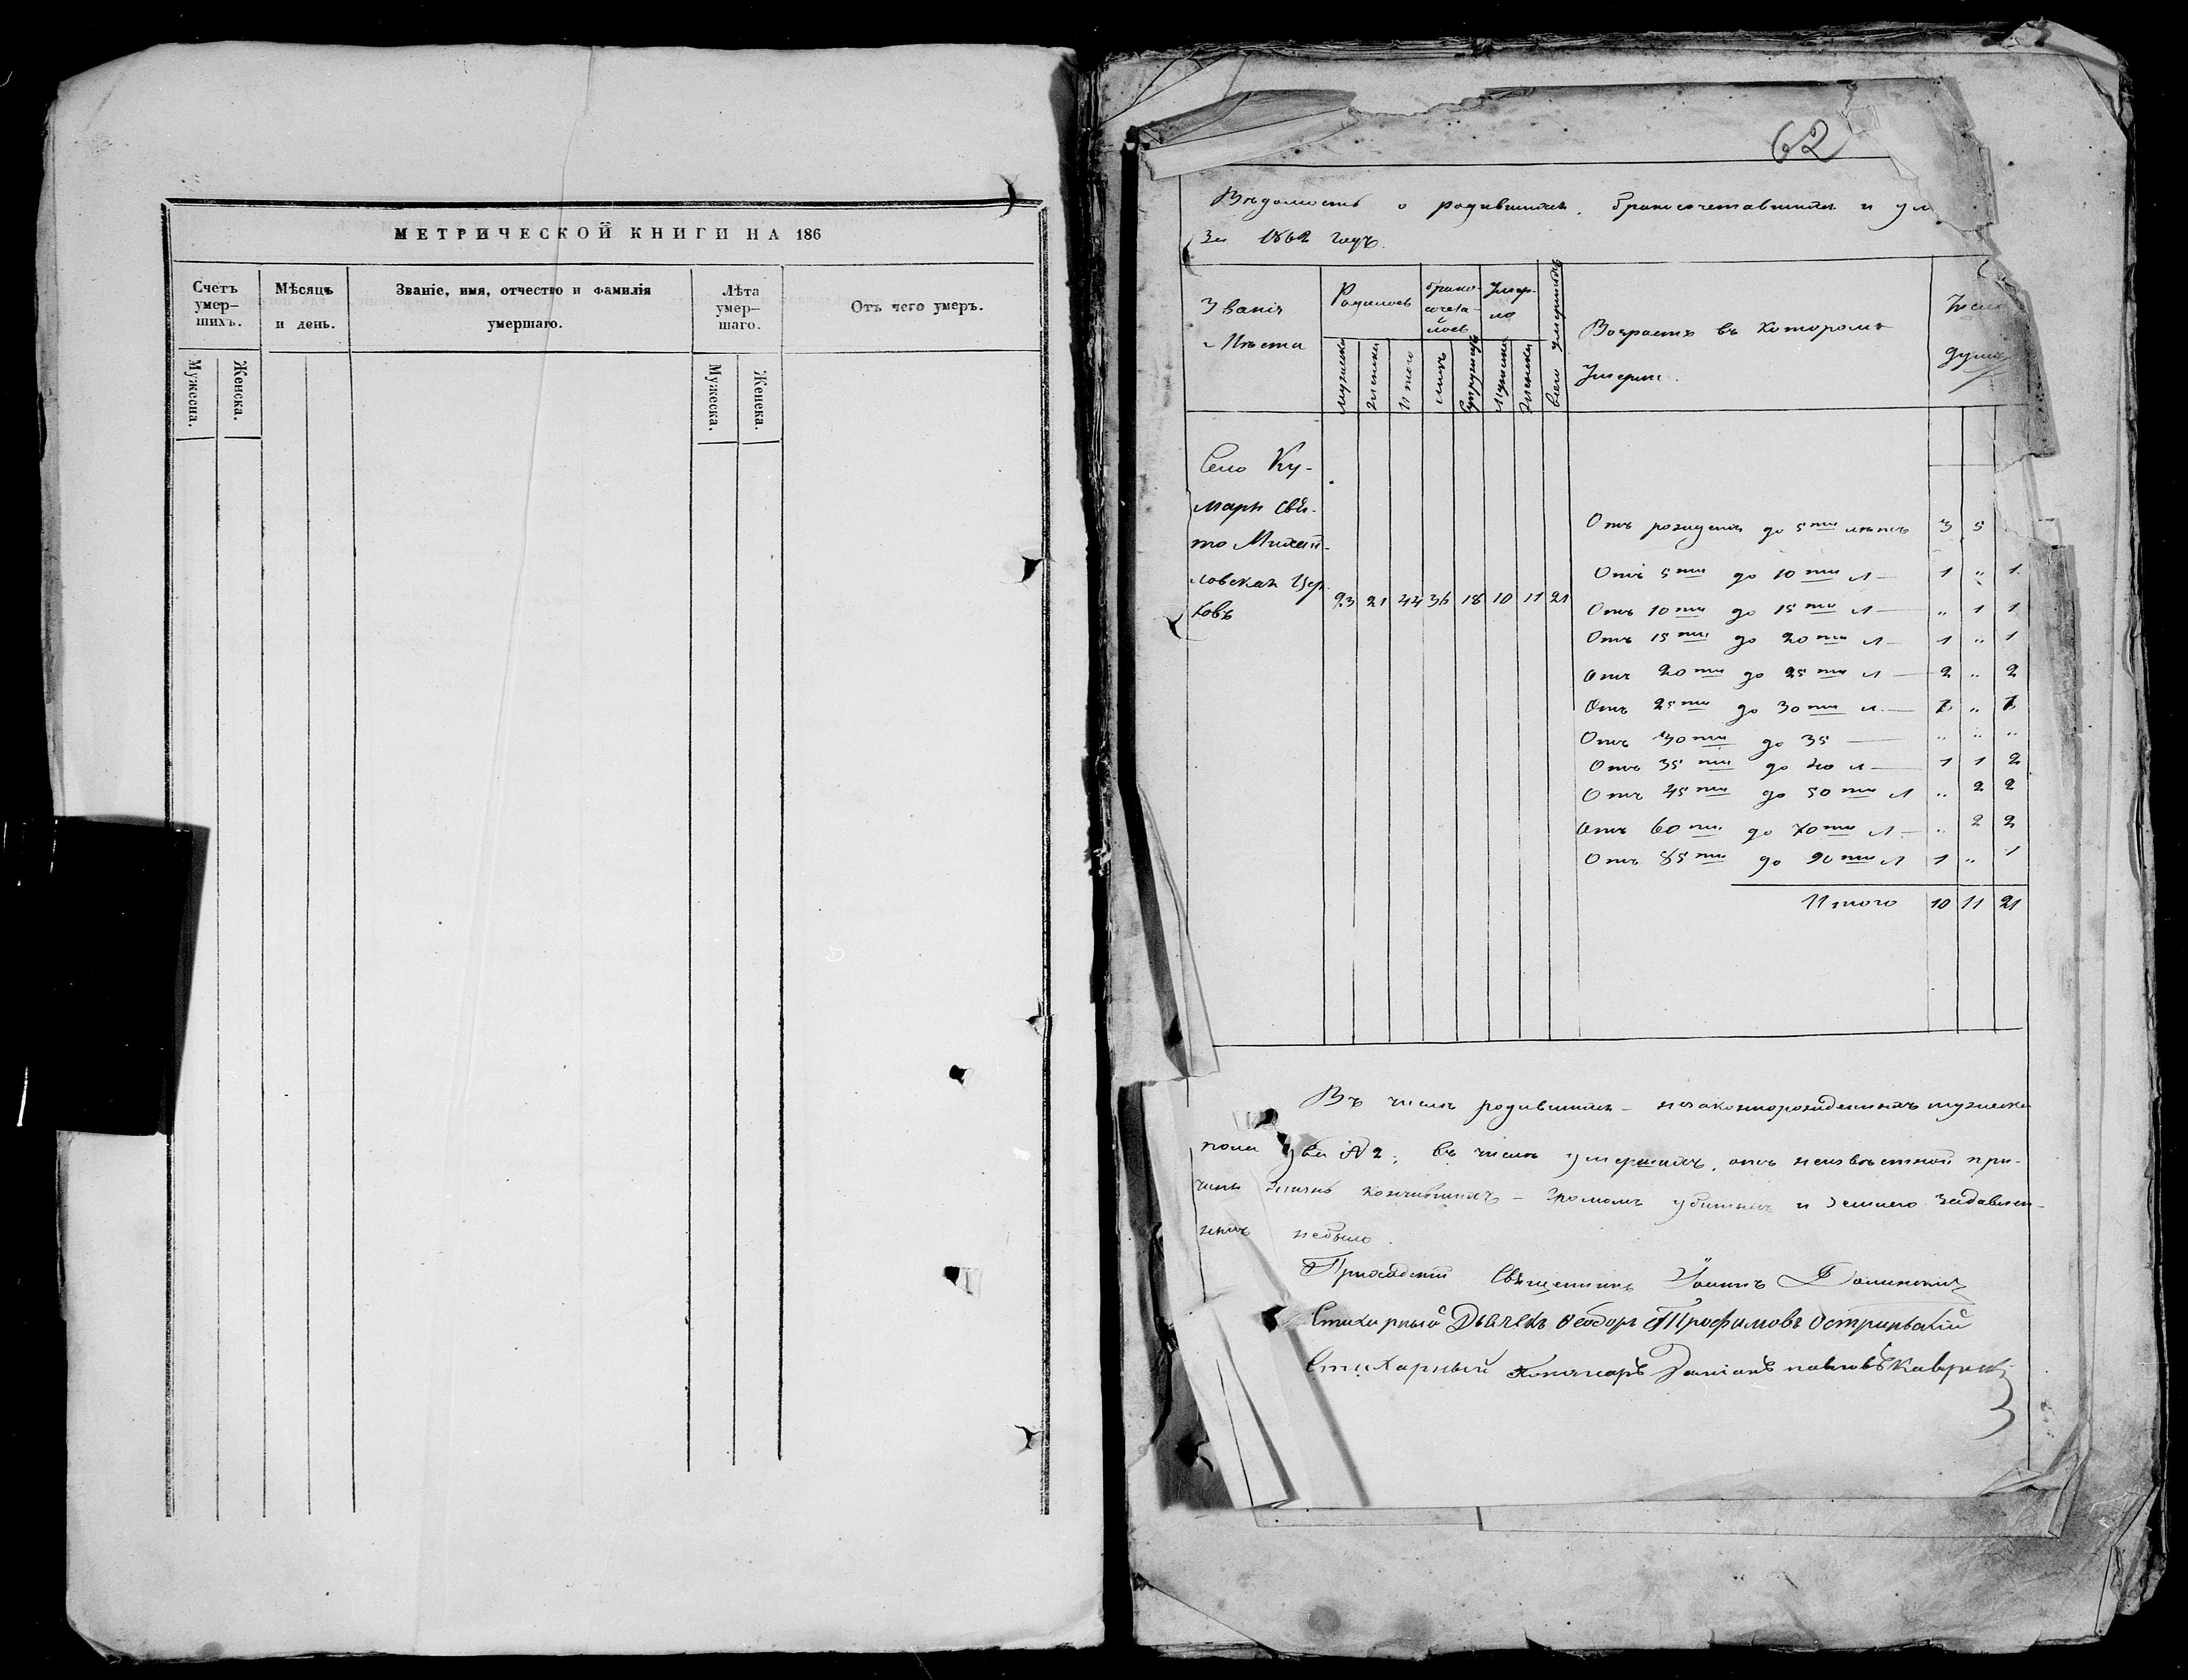 МЕТРИЧЕСКОЙ КНИГИ НА 186
Счетъ умер-шихъ.
Мѣсяцъ и день.
Званіе, имя, отчество и фамилія умершаго.
Лѣта умер-шаго.
Отъ чего умеръ.
Мужеска.
Женска.
Мужеска.
Женска.
62
Вѣдомость о родившихся, бракосочетавшихся и ум
За 1862 годъ.
Званія и Мѣста
Родилось
Брако-сочета-лось
Умер-ло
всего умершихъ
Возрастъ въ которомъ Умерли.
Число душъ
мужеска
женска
Итого
лицъ
супружествъ
Мужеска
Женска
Село Ку-
мары Свя-
то Михай-
ловская Цер
ковь 23 21 44 36 18 10 11 21
Отъ рожденія до 5ти лѣтъ 3 5
Отъ 5ти до 10ти л 1 „ 1
Отъ 10ти до 15ти л „ 1 1
Отъ 15ти до 20ти л 1 „ 1
Отъ 20ти до 25ти л 2 „ 2
Отъ 25ти до 30ти л. 1 „ 1
Отъ 30ти до 35 „ „ „
Отъ 35ти до 40 л 1 1 2
Отъ 45ти до 50ти л „ 2 2
Отъ 60ти до 70ти л „ 2 2
Отъ 85ти до 90ти л 1 „ 1
Итого 10 11 21
Въ числѣ родившихся – незаконнорожденныхъ мужеска
пола два № 2; въ числѣ умершихъ, отъ неизвѣстной при-
чины жизнь кончившихъ – громомъ убитыхъ и землею задавлен-
ныхъ небыло.
Приходскій Священникъ Іоаннъ
Стихарный Дьячекъ Ѳеодоръ Трофимовъ
Стихарный Пономарь Даміанъ Павловъ